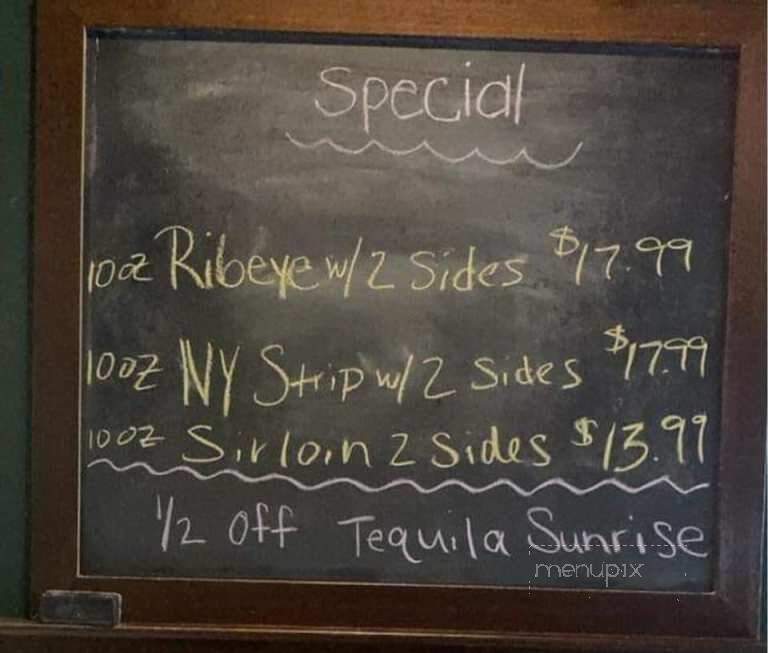 Special
10oz Ribeye w/ 2 Sides $17.99
10oz NY Strip w/ 2 Sides $17.99
10oz Sirloin 2 Sides $13.99
1/2 Off Tequila Sunrise
menupix